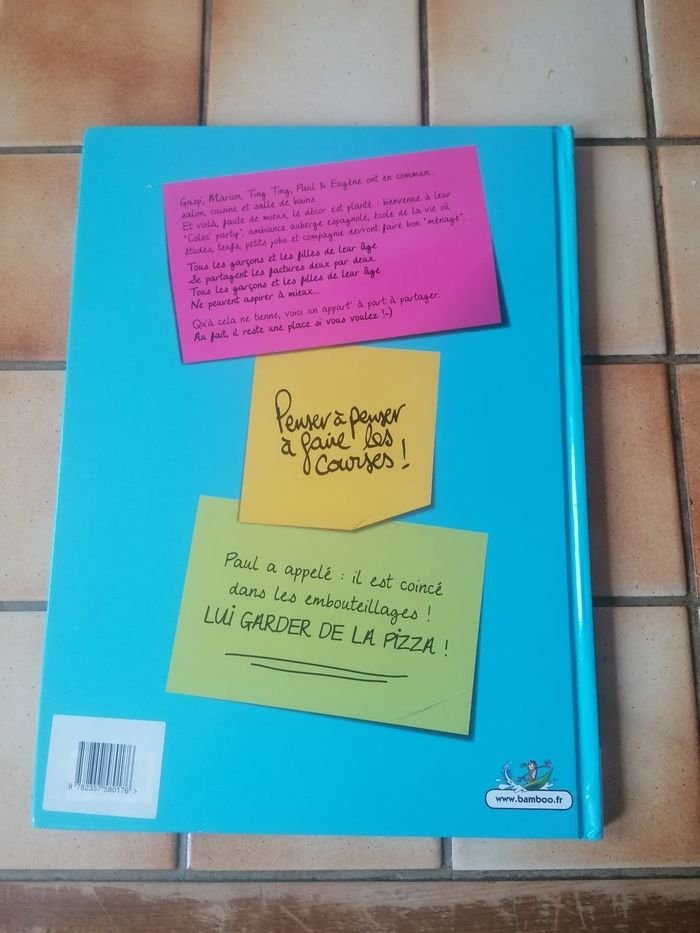 Gasp', Marion, Ting Ting, Paul & Eugène ont en commun...
salon, cuisine et salle de bains.
Et voilà, faute de mieux, le décor est planté : bienvenue à leur
"Coloc' party", ambiance auberge espagnole, école de la vie où
études, teufs, petits jobs et compagnie devront faire bon "ménage".
Tous les garçons et les filles de leur âge
Se partagent les factures deux par deux.
Tous les garçons et les filles de leur âge
Ne peuvent aspirer à mieux...
Qu'à cela ne tienne, voici un appart' à part à partager.
Au fait, il reste une place si vous voulez !-)
Penser à penser
à faire les
courses !
Paul a appelé : il est coincé
dans les embouteillages !
LUI GARDER DE LA PIZZA !
9 782357 580176 >
www.bamboo.fr